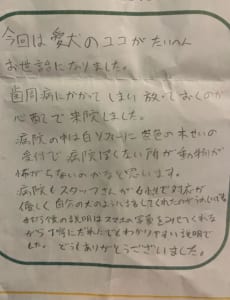 今回は愛犬のココがたいへん
お世話になりました。
歯周病にかかってしまい放っておくのが
心配で来院しました。
病院の中は白いソファーに茶色の木せいの
受付で病院ぽくない所が動物が
怖がらないのかなと思います。
病院もスタッフさんが女性で対応が
優しく自分の犬のように
の説明はスマホの写真をみせてくれな
がら丁寧にだれにでもわかりやすい説明で
した。どうもありがとうございました。